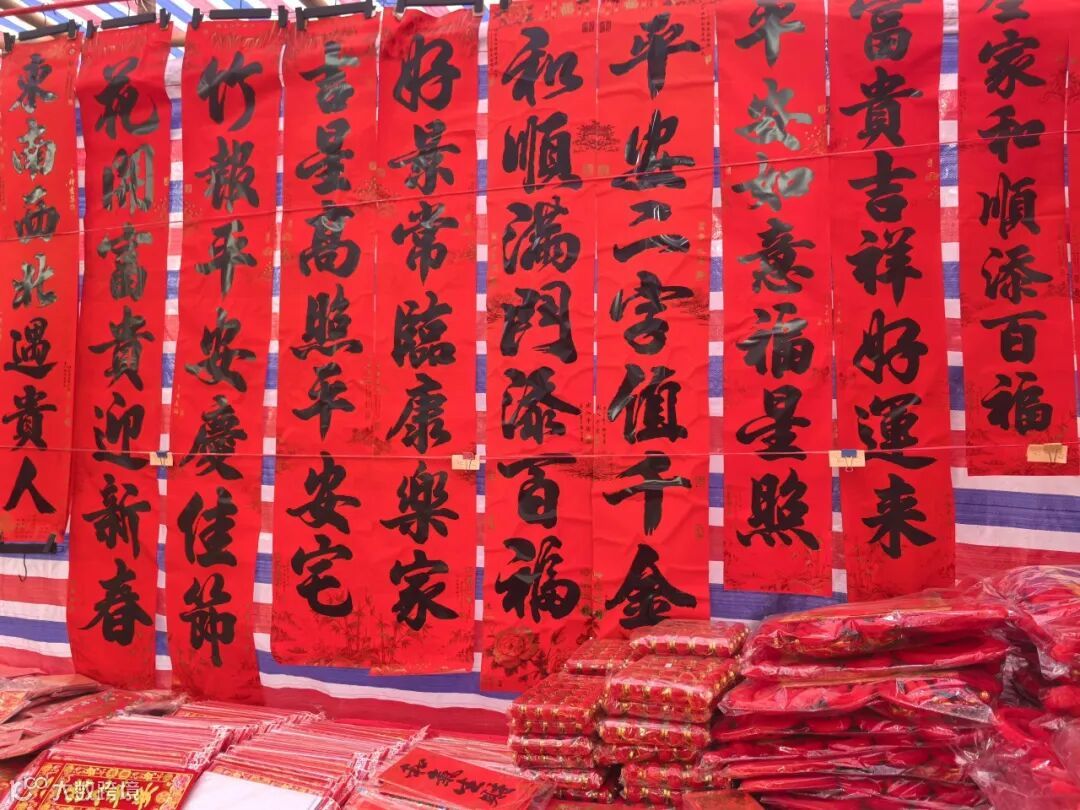 全家和順添百福
富貴吉祥好運来
平安如意福星照
平安二字值千金
和順滿門添百福
好景常臨康樂家
吉星高照平安宅
竹報平安慶佳節
花開富貴迎新春
東南西北遇貴人
和氣生財
大数跨境